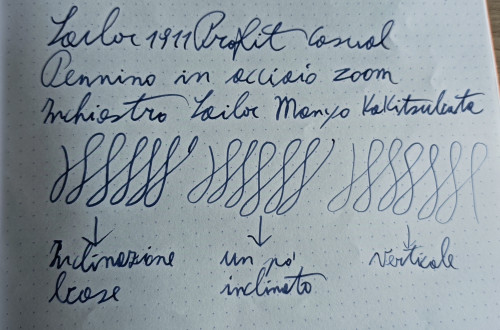 Sailor 1911 Profit Casual
Pennino in acciaio zoom
Inchiostro Sailor Manyo Kakitsubata
Inclinazione un pó verticale
base inclinato